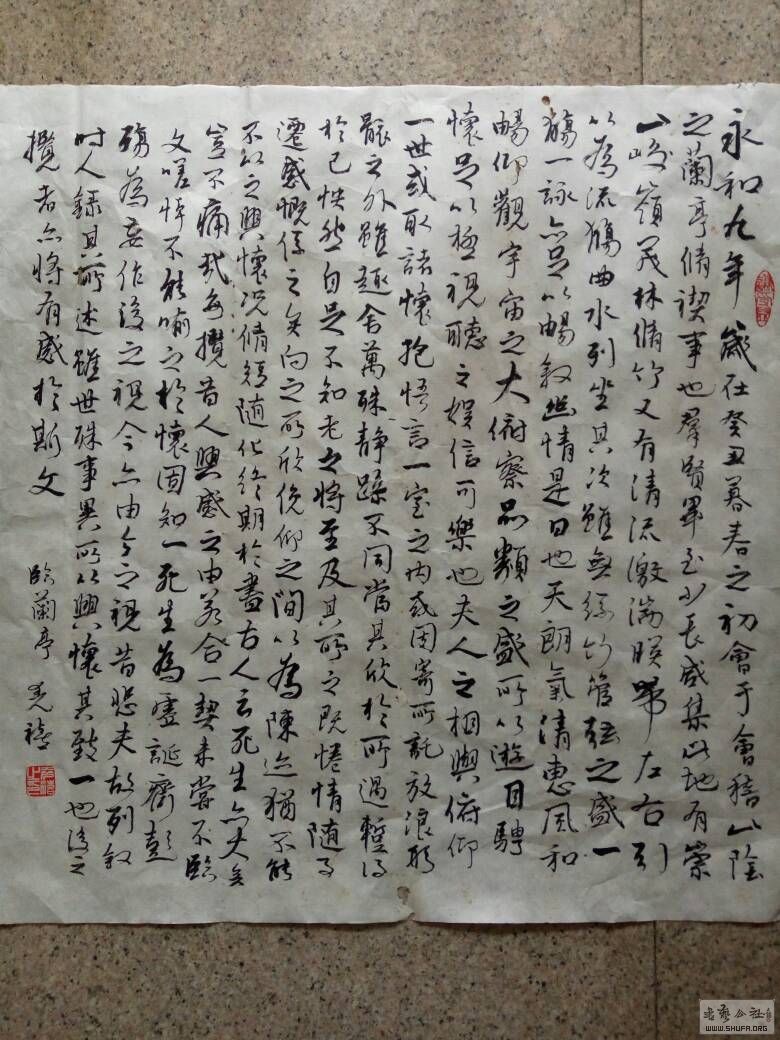 永和九年歲在癸丑暮春之初會于會稽山陰
之蘭亭脩禊事也群賢畢至少長咸集此地有崇
山峻嶺茂林脩竹又有清流激湍暎帶左右引
以為流觴曲水列坐其次雖無絲竹管弦之盛一
觴一詠亦足以暢敘幽情是日也天朗氣清惠風和
暢仰觀宇宙之大俯察品類之盛所以遊目騁
懷足以極視聽之娛信可樂也夫人之相與俯仰
一世或取諸懷抱悟言一室之內或因寄所託放浪形
骸之外雖趣舍萬殊靜躁不同當其欣於所遇蹔得
於己怏然自足不知老之將至及其所之既惓情隨事
遷感慨係之矣向之所欣俛仰之間以為陳迹猶不能
不以之興懷況脩短隨化終期於盡古人云死生亦大矣
豈不痛哉每攬昔人興感之由若合一契未嘗不臨
文嗟悼不能喻之於懷固知一死生為虛誕齊彭
殤為妄作後之視今亦由今之視昔悲夫故列敘
時人錄其所述雖世殊事異所以興懷其致一也後之
攬者亦將有感於斯文
臨蘭亭
WWW.SHUFA.ORG